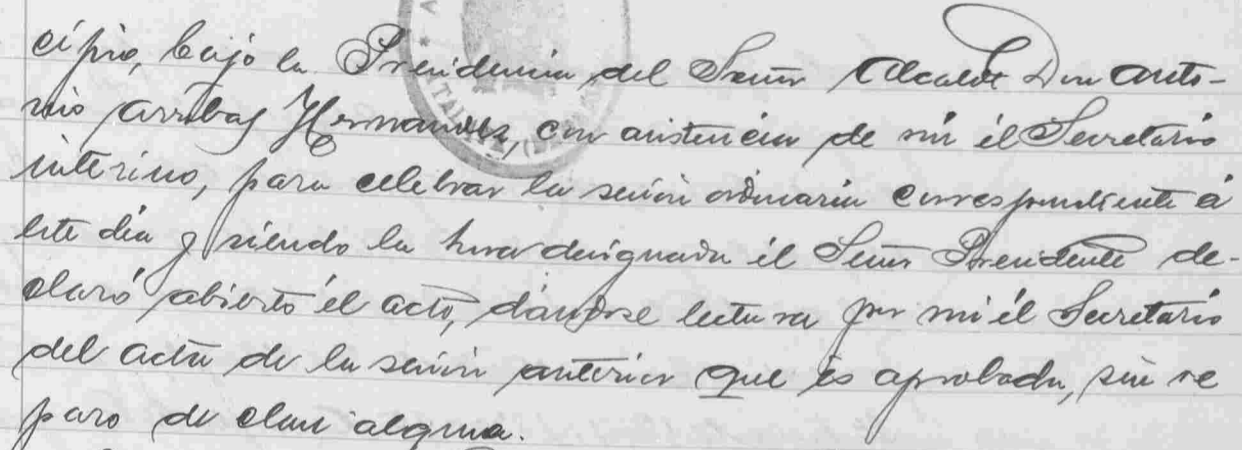 cipio, bajo la Presidencia del Señor Alcalde Don Anto-
nio Arribas Hernandez, con asistencia de mi él Secretario
interino, para celebrar la sesión ordinaria correspondiente á
este día y siendo la hora designada él Señor Presidente de-
claró abierto él acto, dándose lectura por mi él Secretario
del acta de la sesión anterior que és aprobada, sin re
paro de clase alguna.